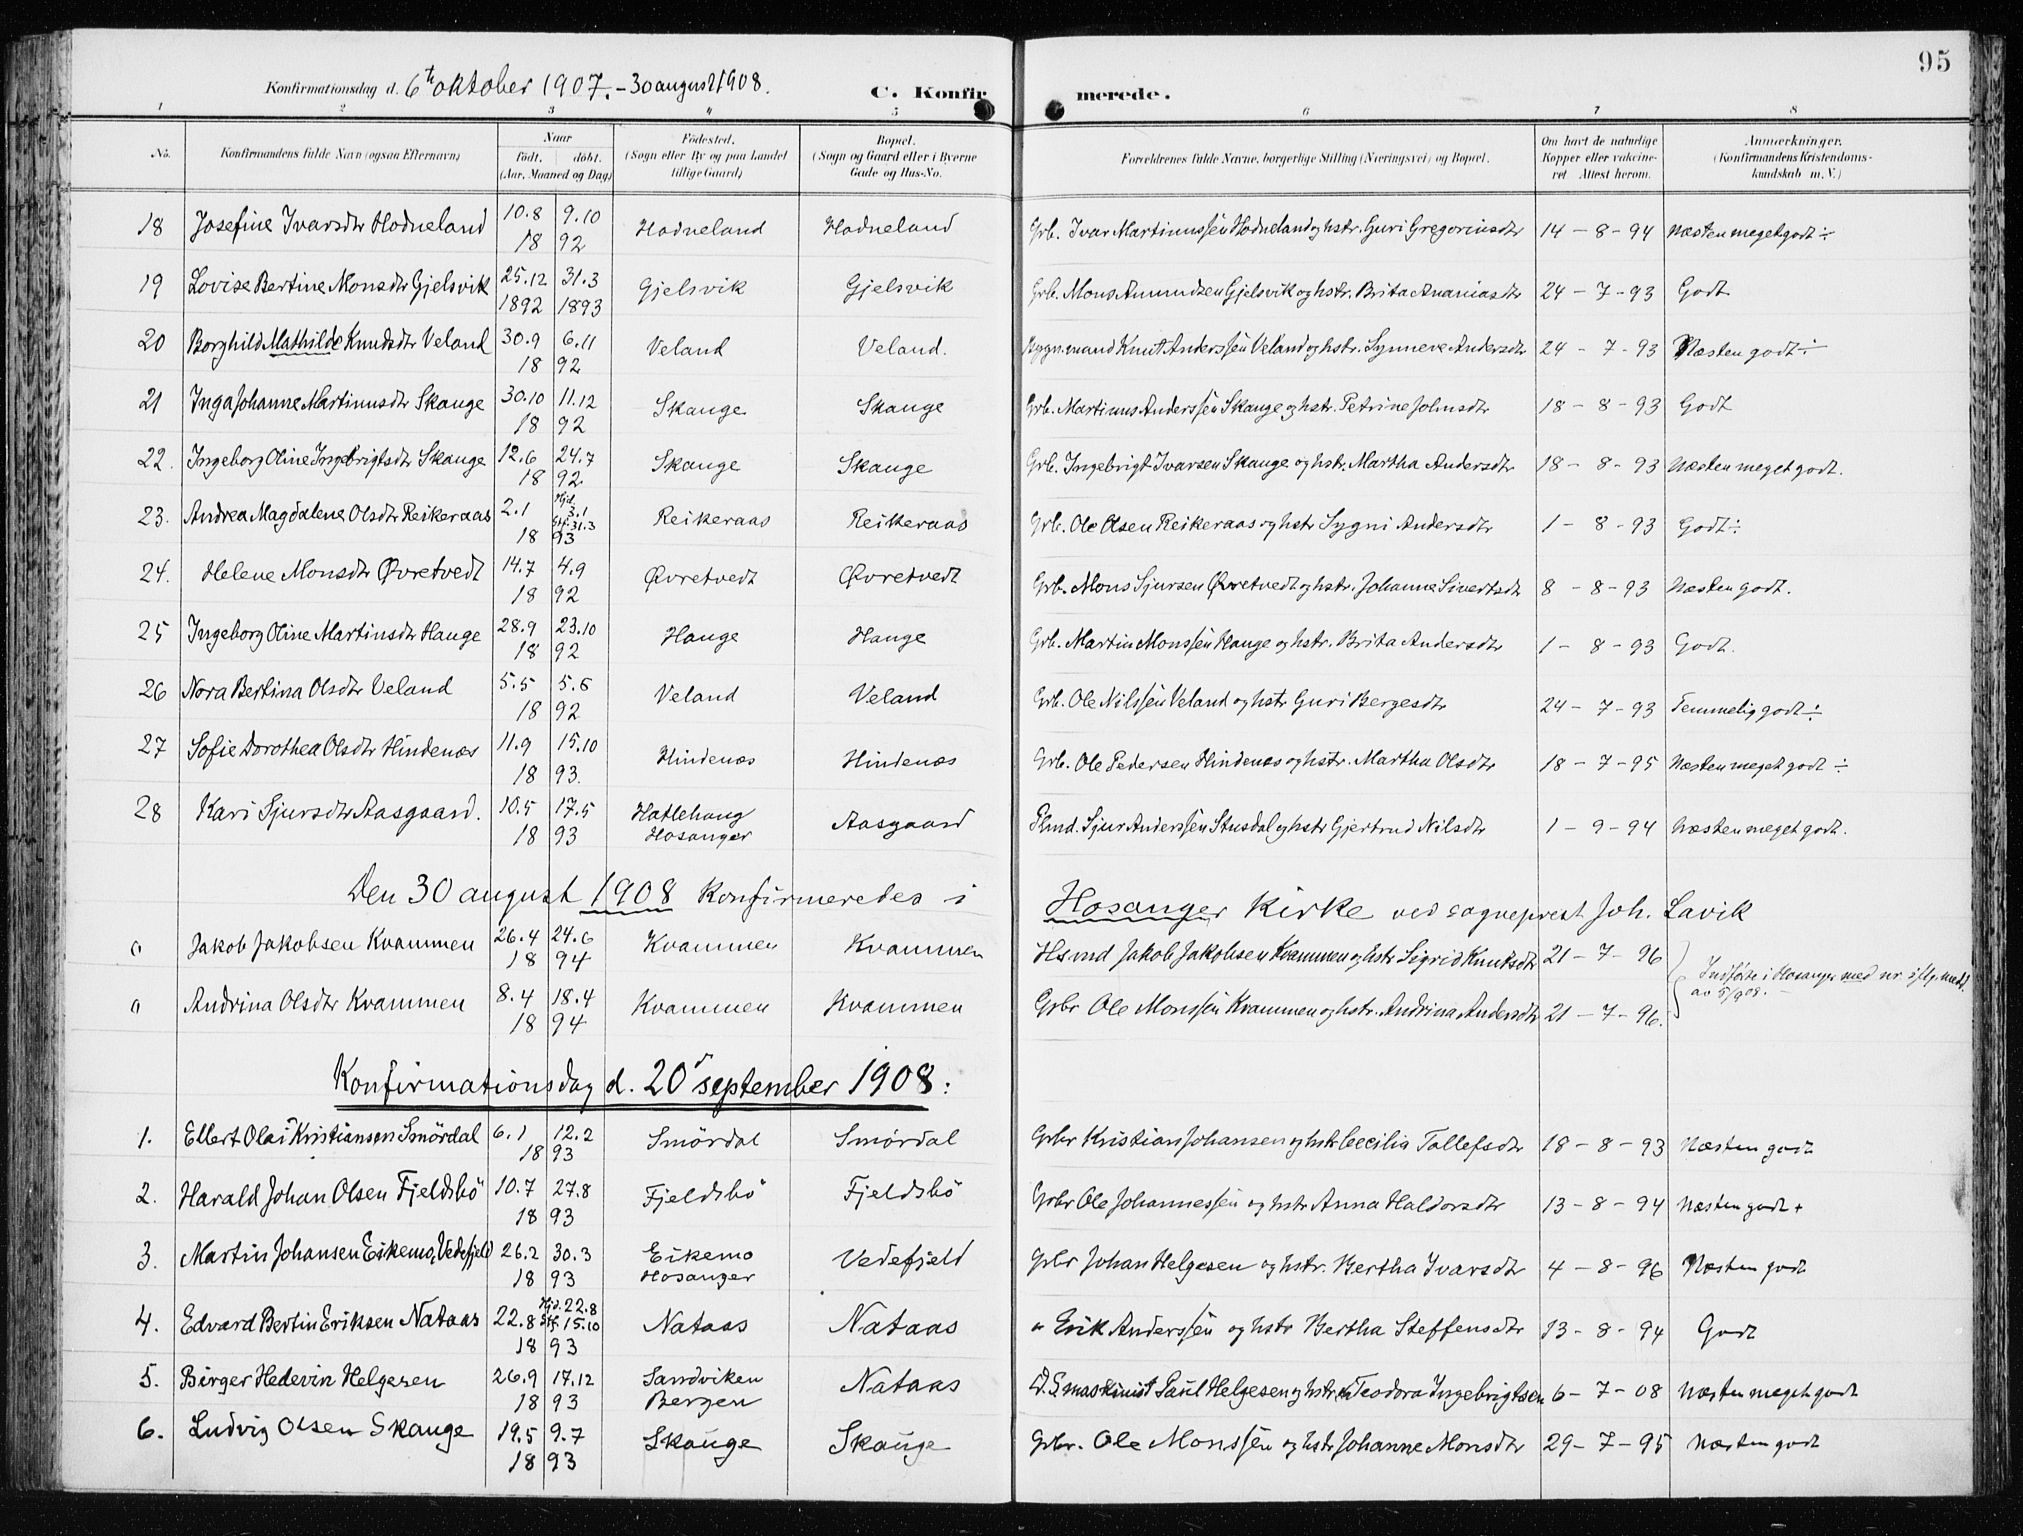 95
Konfirmationsdag d. 6th oktober 1907. - 30 august 1908. C. Konfirmerede.
1 2 3 4 5 6 7 8
No. Konfirmandens fulde Navn (ogsaa Efternavn) Naar født. døbt. (Aar, Maaned og Dag) Fødested. (Sogn eller By og paa Landet tillige Gaard) Bopæl. (Sogn og Gaard eller i Byerne Gade og Hus-No. Forældrenes fulde Navne, borgerlige Stilling (Næringsvei) og Bopæl. Om havt de naturlige Kopper eller vakcineret Attest herom. Anmærkninger. (Konfirmandens Kristendomskundskab m. V.)
18 Josefine Ivarsdtr Hodneland 10.8 9.10 1892 Hodneland Hodneland Grb. Ivar Martinussen Hodneland og hstr. Guri Gregoriusdtr 14 - 8 - 94 Næsten meget godt ÷
19 Lovise Bertine Monsdtr Gjelsvik 25.12 1892 31.3 1893 Gjelsvik Gjelsvik Grb. Mons Amundsen Gjelsvik og hstr. Brita Ananiasdtr 24 - 7 - 93 Godt
20 Borghild Mathilde Knudsdtr Veland 30.9 6.11 1892 Veland Veland. Bygn.mand Knut Anderssen Veland og hstr. Synneve Andersdtr 24 - 7 - 93 Næsten godt ÷
21 Inga Johanne Martinusdtr Skauge 30.10 11.12 1892 Skauge Skauge Grb. Martinus Anderssen Skauge og hstr. Petrine Johnsdtr 18 - 8 - 93 Godt
22. Ingeborg Oline Ingebrigtsdtr Skauge 12.6 24.7 1892 Skauge Skauge Grb. Ingebrigt Ivarsen Skauge og hstr. Martha Andersdtr 18 - 8 - 93 Næsten meget godt.
23. Andrea Magdalene Olsdtr Reikeraas 2.1 Hjd. 3.1 Stf. 31.3 1893 Reikeraas Reikeraas Grb. Ole Olsen Reikeraas og hstr Sygni Andersdtr 1 - 8 - 93 Godt ÷
24. Helene Monsdtr Øvretvedt 14.7 4.9 1892 Øvretvedt Øvretvedt Grb. Mons Sjursen Øvretvedt og hstr. Johanne Sivertsdtr 8 - 8 - 93 Næsten godt.
25 Ingeborg Oline Martinsdtr Hauge 28.9 23.10 1892 Hauge Hauge Grb. Martin Monssen Hauge og hstr. Brita Andersdtr 1 - 8 - 93 Godt.
26 Nora Bertina Olsdtr Veland 5.5 5.6 1892 Veland Veland Grb. Ole Nilssen Veland og hstr Guri Bergesdtr 24 - 7 - 93 Temmelig godt ÷
27 Sofie Dorothea Olsdtr Hindenæs 11.9 15.10 1893. Hindenæs Hindenæs Grb. Ole Pedersen Hindenæs og hstr. Martha Olsdtr 18 - 7 - 95 Næsten meget godt ÷
28 Kari Sjursdtr Aasgaard. 10.5 17.5 1893 Hatlehaug Hosanger Aasgaard Plmd. Sjur Anderssen Stusdal og hstr Gjertrud Nilsdtr 1 - 9 - 94 Næsten meget godt.
Den 30 august 1908 Konfirmeredes i Hosanger Kirke ved sogneprest Joh. Lavik
0 Jakob Jakobsen Kvammen 26.4 24.6 1894 Kvammen Kvammen Hsmd Jakob Jakobsen Kvammen og hstr Sigrid Knutsdtr 21 - 7 - 96 Indførte i Hosanger med nr iflg. medd. av 5/9 08.
0 Andrina Olsdtr Kvammen 8.4 18.4 1894 Kvammen Kvammen Grbr Ole Monssen Kvammen og hstr. Andrina Andersdtr 21 - 7 - 96.
Konfirmationsdag d. 20d september 1908:
1. Ellert Olai Kristiansen Smördal 6.1 12.2 1893 Smördal Smördal Grbr Kristian Johansen og hstr Cecilia Tollefsdtr 18 - 8 - 93 Næsten godt
2. Harald Johan Olsen Fjeldsbö 10.7 27.8 1893 Fjeldsbö Fjeldsbö Grbr Ole Johannessen og hstr Anna Haldorsdtr 13 - 8 - 94 Næsten godt +
3. Martin Johansen Eikemo, Vedefjeld 26.2 30.3 1893 Eikemo Hosanger Vedefjeld Grbr Johan Helgesen og hstr. Bertha Ivarsdtr 4 - 8 - 96 Næsten godt
4. Edvard Bertin Eriksen Nataas 22.8 Hjd. 22.8 Stf. 15.10 1893 Nataas Nataas " Erik Anderssen og hstr Bertha Steffensdtr 13 - 8 - 94 Godt
5. Birger Hedevin Helgesen 26.9 17.12 1893 Sandviken Bergen Nataas D.S maskinist Paul Helgesen og hstr Teodora Ingebrigtsen 6 - 7 - 08 Næsten meget godt
6. Ludvig Olsen Skauge 19.5 9.7 1893 Skauge Skauge Grbr. Ole Monssen og hstr Johanne Monsdtr 29 - 7 - 95 Næsten godt